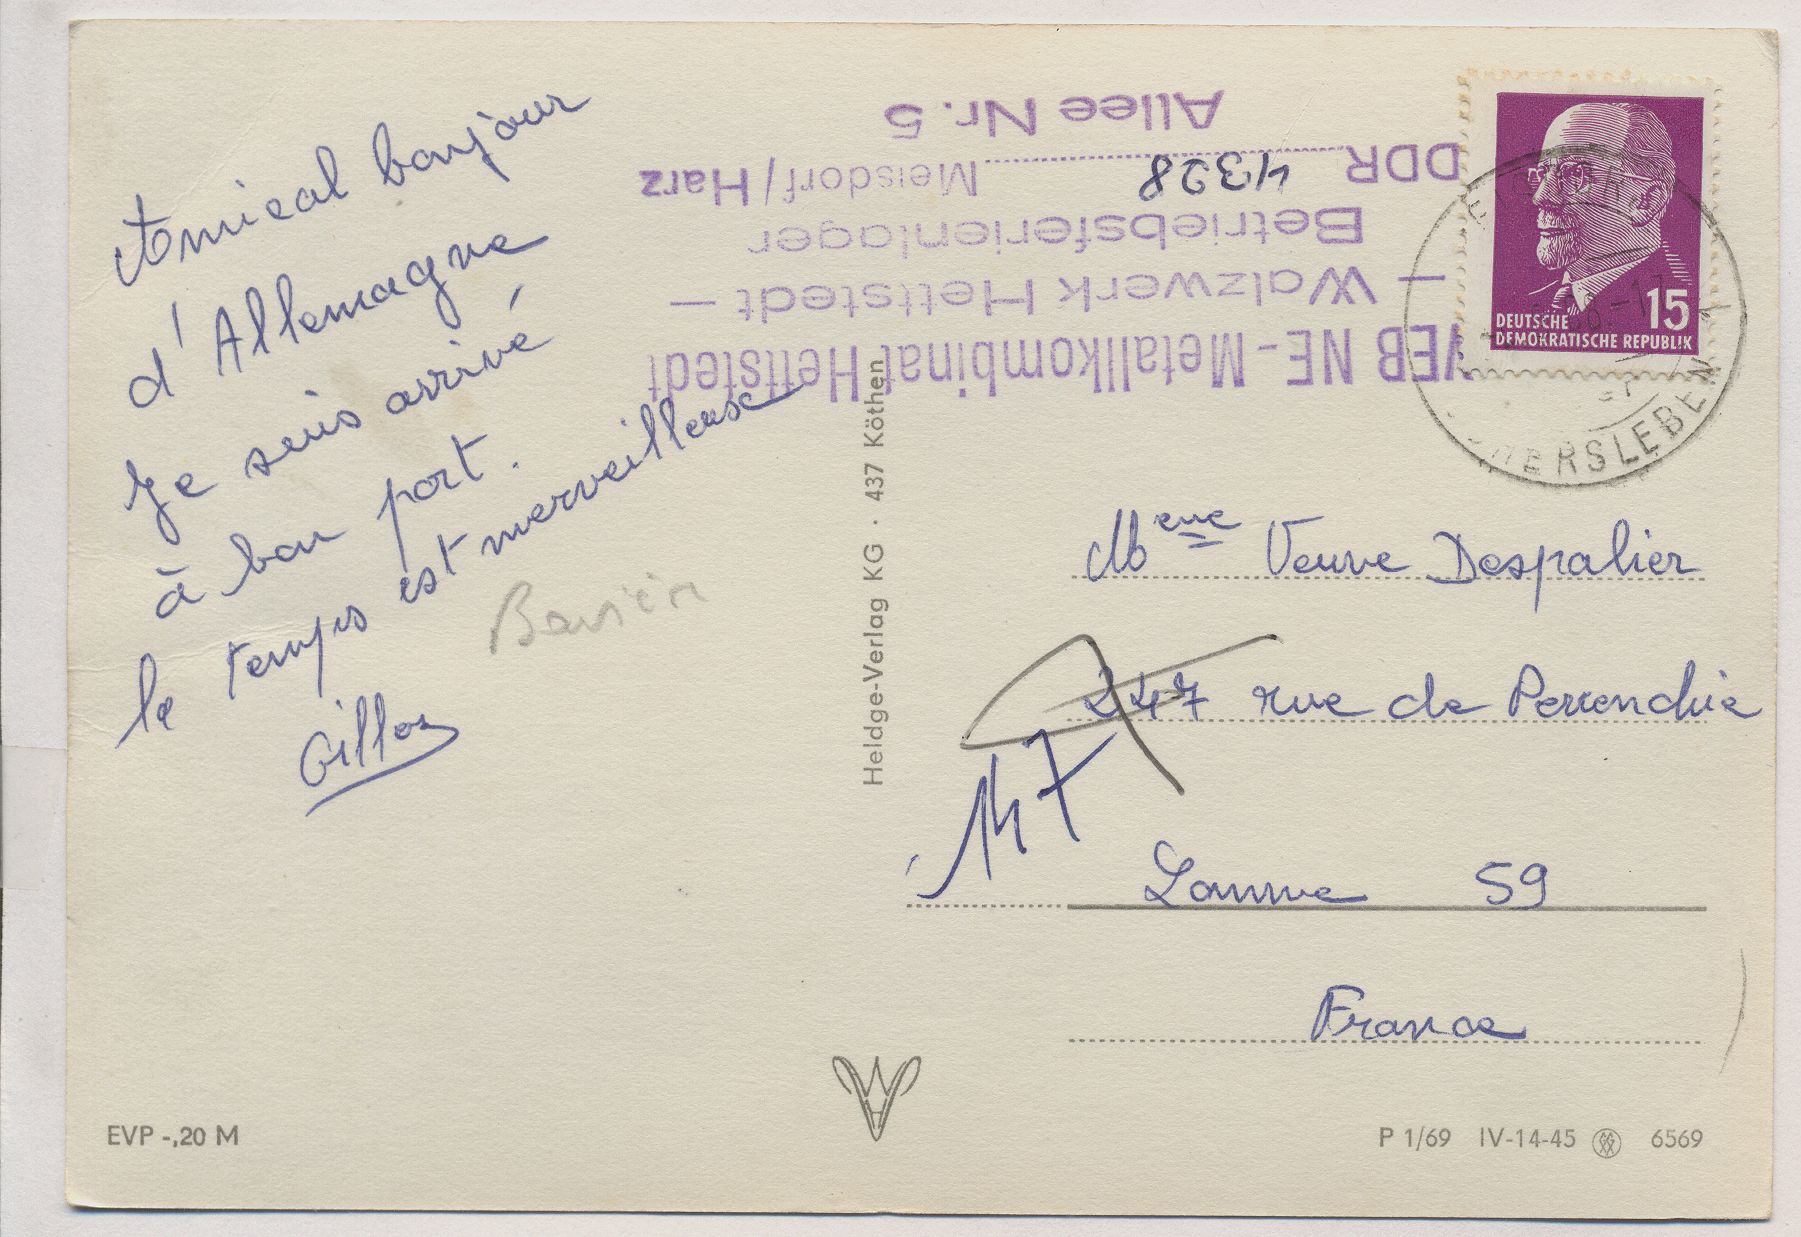 Amical bonjour
d'Allemagne
Je suis arrivé
à bon port.
le temps est merveilleux
Gilles
VEB NE-Metallkombinat Hettstedt
– Walzwerk Hettstedt –
Betriebsferienlager
DDR 4328 Meisdorf/Harz
Allee Nr. 5
15
DEUTSCHE
DEMOKRATISCHE REPUBLIK
ERSLEBEN
Heldge-Verlag KG · 437 Köthen
Mme Veuve Despalier
247 rue de Perrenchie
147
Lomme 59
France
EVP -,20 M
P 1/69 IV-14-45 6569